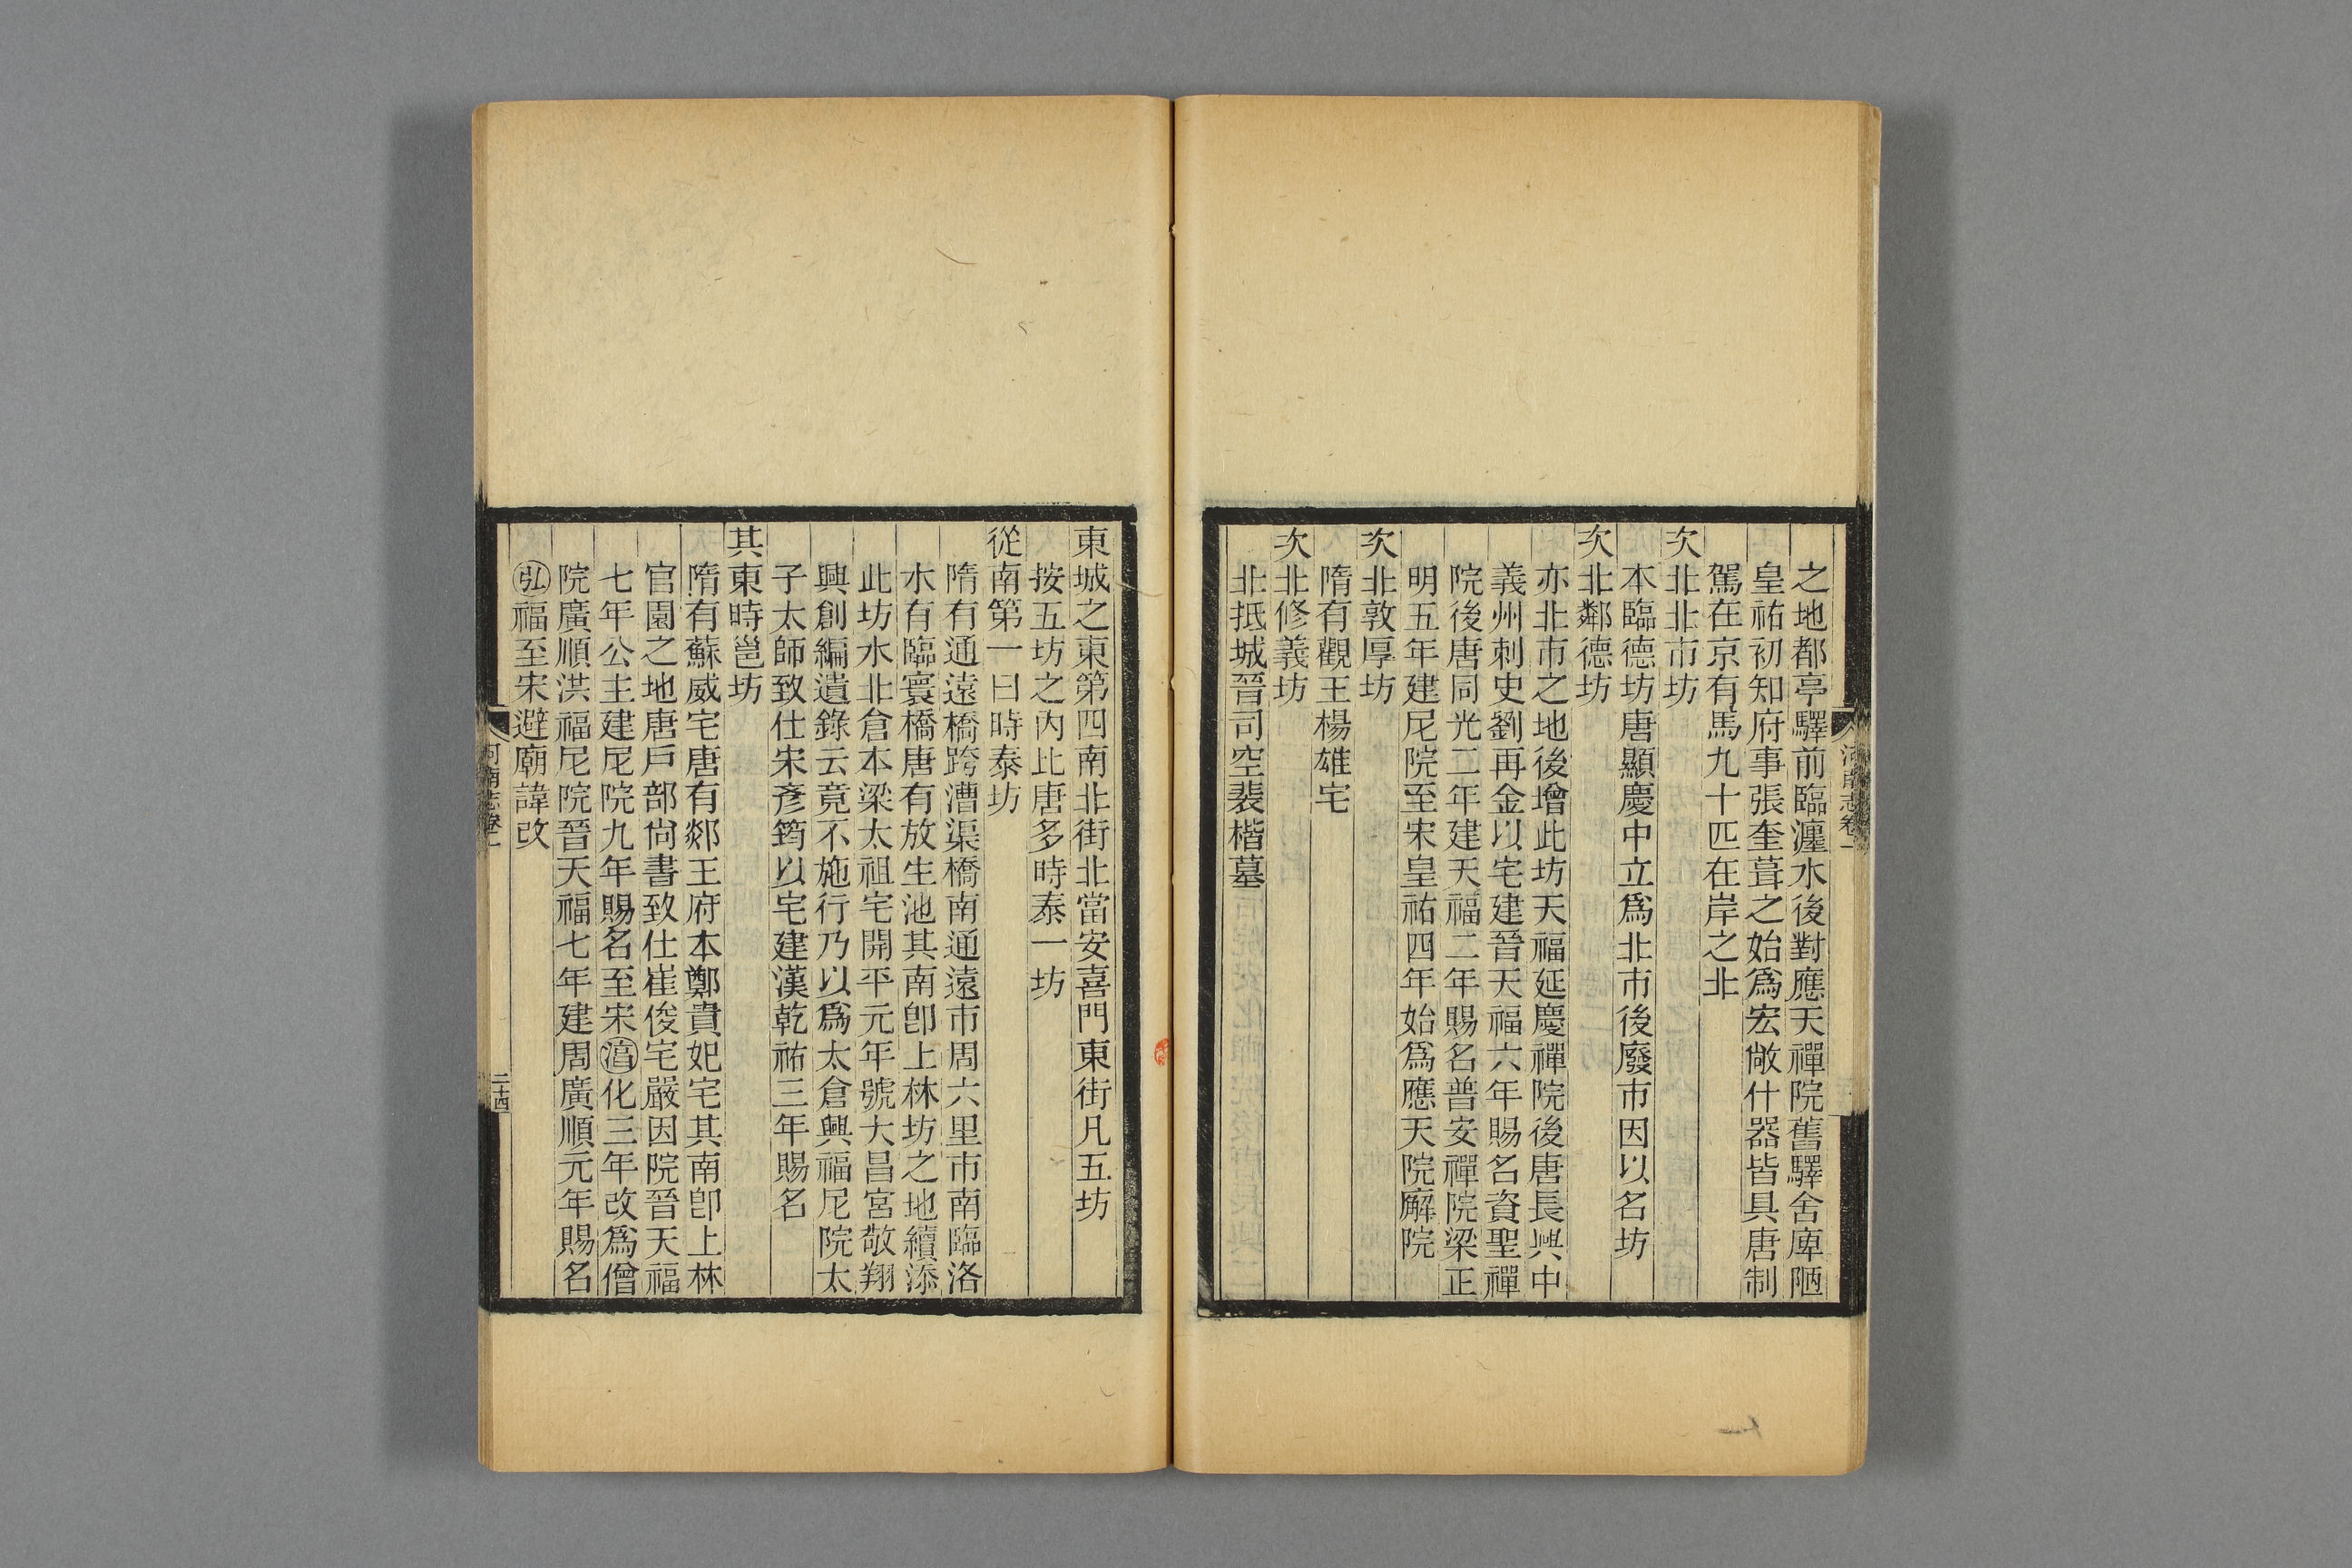 之地都亭驛前臨瀍水後對應天禪院舊驛舍庳陋
皇祐初知府事張奎葺之始爲宏敞什器皆具唐制
駕在京有馬九十匹在岸之北
次北北市坊
本臨德坊唐顯慶中立爲北市後廢市因以名坊
次北鄰德坊
亦北市之地後增此坊天福延慶禪院後唐長興中
義州刺史劉再金以宅建晉天福六年賜名資聖禪
院後唐同光二年建天福二年賜名普安禪院梁正
明五年建尼院至宋皇祐四年始爲應天院廨院
次北敦厚坊
隋有觀王楊雄宅
次北修義坊
北抵城晉司空裴楷墓
河南志卷一
東城之東第四南北街北當安喜門東街凡五坊
按五坊之內比唐多時泰一坊
從南第一曰時泰坊
隋有通遠橋跨漕渠橋南通遠市周六里市南臨洛
水有臨寰橋唐有放生池其南卽上林坊之地續添
此坊水北倉本梁太祖宅開平元年號大昌宮敬翔
興創編遺錄云竟不施行乃以爲太倉興福尼院太
子太師致仕宋彥筠以宅建漢乾祐三年賜名
其東時邕坊
隋有蘇威宅唐有郯王府本鄭貴妃宅其南卽上林
官園之地唐戶部尙書致仕崔俊宅嚴因院晉天福
七年公主建尼院九年賜名至宋湻化三年改爲僧
院廣順洪福尼院晉天福七年建周廣順元年賜名
弘福至宋避廟諱改
河南志卷一
二十四